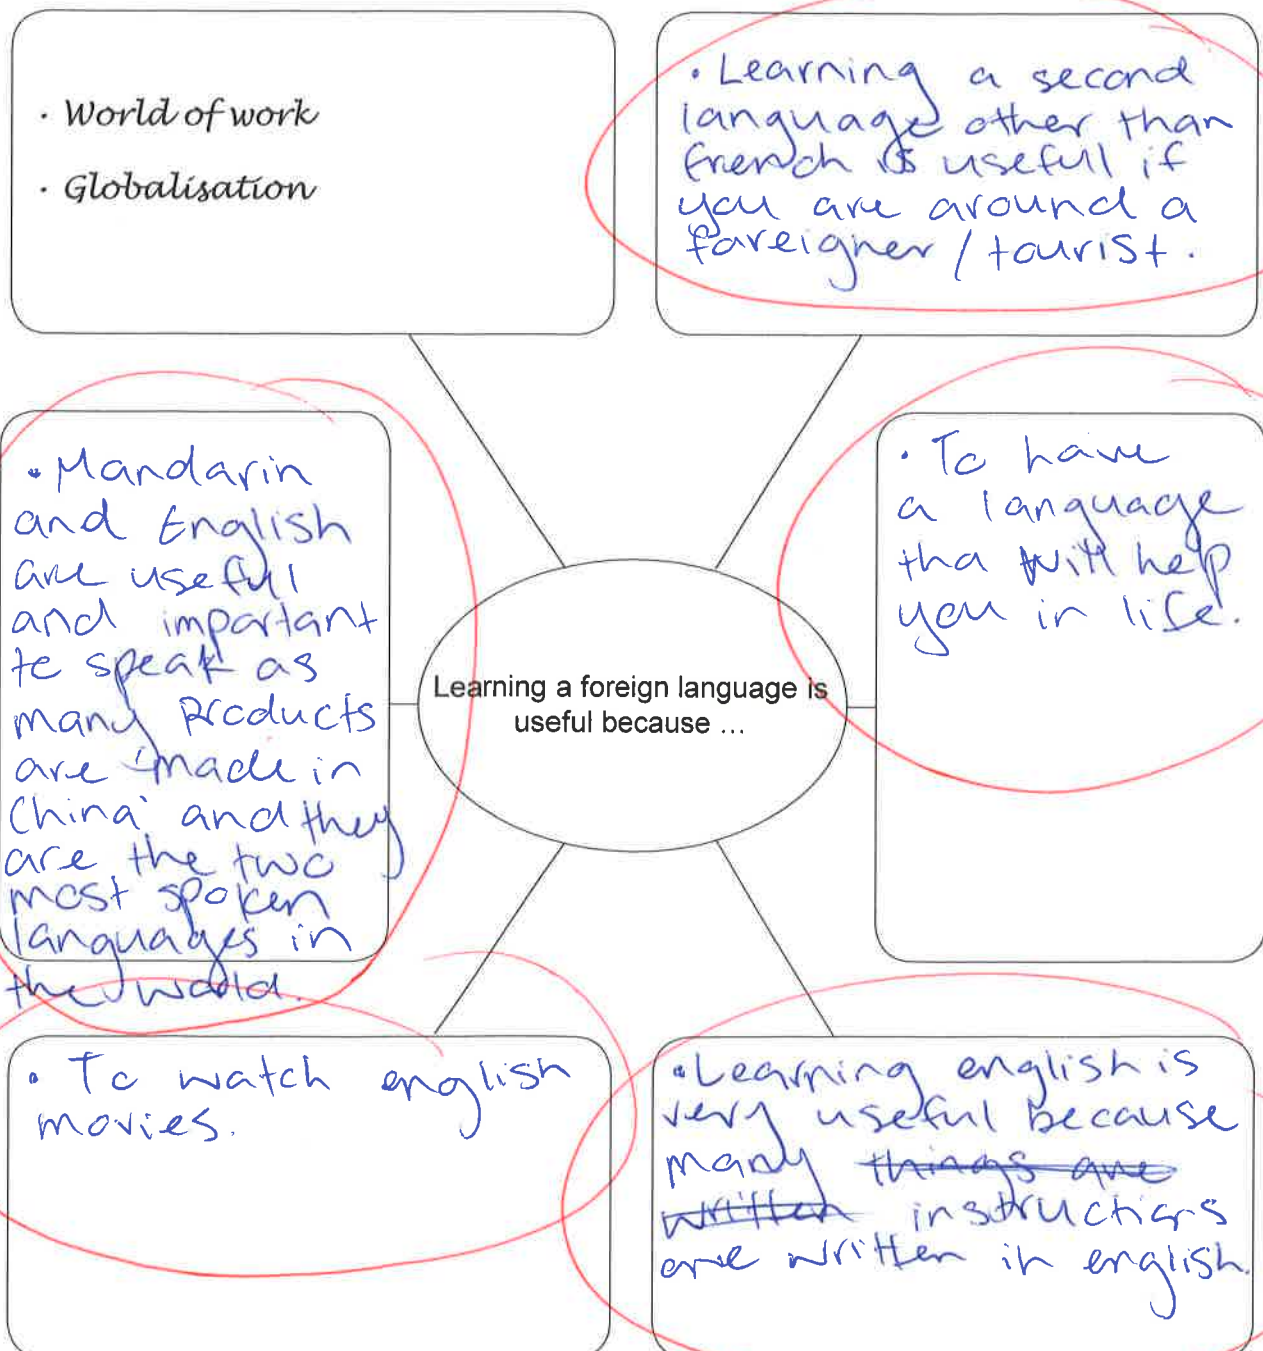 · World of work
· Globalisation
· Learning a second
language other than
french is useful if
you are around a
foreigner / tourist.
· Mandarin
and English
are useful
and important
to speak as
many products
are 'made in
China' and they
are the two
most spoken
languages in
the world.
· To have
a language
tha will help
you in life.
Learning a foreign language is
useful because ...
· To watch english
movies.
· Learning english is
very useful because
many things are
written instructions
are written in english.